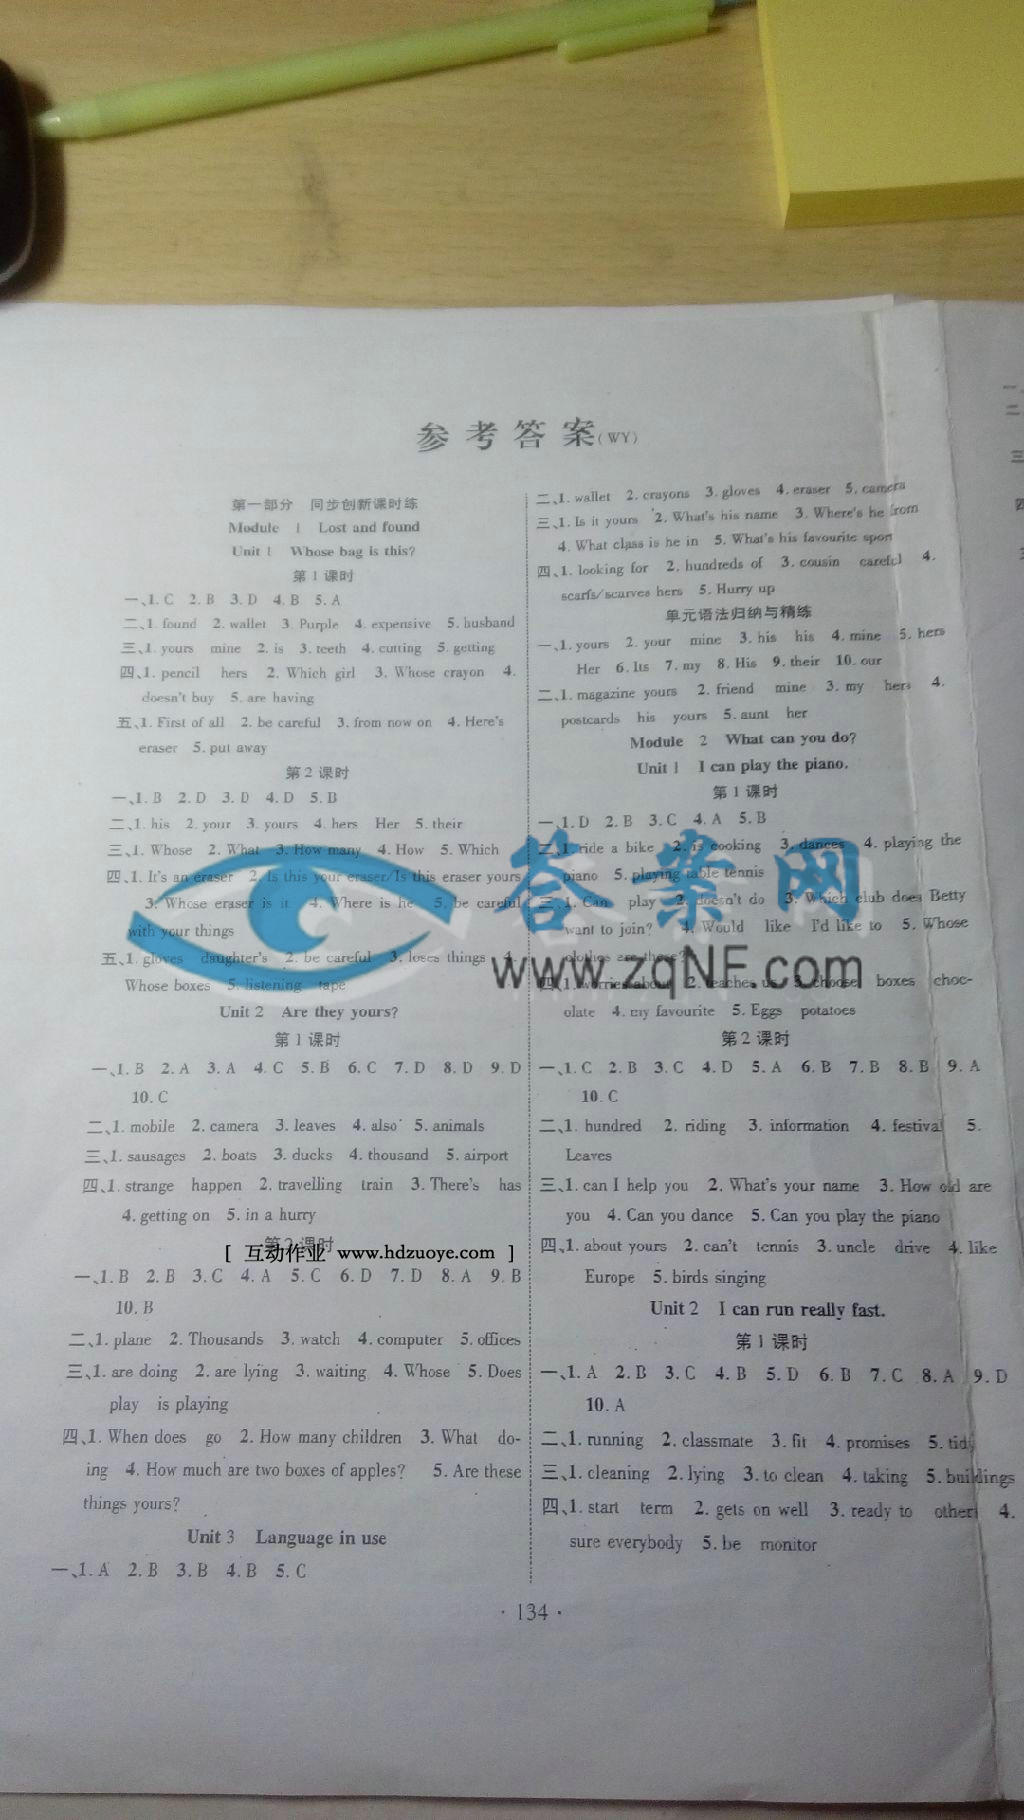 参考答案(WY)
第一部分 同步创新课时练
Module 1 Lost and found
Unit 1 Whose bag is this?
第1课时
一、1. C 2. B 3. D 4. B 5. A
二、1. found 2. wallet 3. Purple 4. expensive 5. husband
三、1. yours mine 2. is 3. teeth 4. cutting 5. getting
四、1. pencil hers 2. Which girl 3. Whose crayon 4.
doesn't buy 5. are having
五、1. First of all 2. be careful 3. from now on 4. Here's
eraser 5. put away
第2课时
一、1. B 2. D 3. D 4. D 5. B
二、1. his 2. your 3. yours 4. hers Her 5. their
三、1. Whose 2. What 3. How many 4. How 5. Which
四、1. It's an eraser 2. Is this your eraser/Is this eraser yours
3. Whose eraser is it 4. Where is he 5. be careful
with your things
五、1. gloves daughter's 2. be careful 3. loses things 4.
Whose boxes 5. listening tape
Unit 2 Are they yours?
第1课时
一、1. B 2. A 3. A 4. C 5. B 6. C 7. D 8. D 9. D
10. C
二、1. mobile 2. camera 3. leaves 4. also 5. animals
三、1. sausages 2. boats 3. ducks 4. thousand 5. airport
四、1. strange happen 2. travelling train 3. There's has
4. getting on 5. in a hurry
第2课时
[ 互动作业 www.hdzuoye.com ]
一、1. B 2. B 3. C 4. A 5. C 6. D 7. D 8. A 9. B
10. B
二、1. plane 2. Thousands 3. watch 4. computer 5. offices
三、1. are doing 2. are lying 3. waiting 4. Whose 5. Does
play is playing
四、1. When does go 2. How many children 3. What do-
ing 4. How much are two boxes of apples? 5. Are these
things yours?
Unit 3 Language in use
一、1. A 2. B 3. B 4. B 5. C
二、1. wallet 2. crayons 3. gloves 4. eraser 5. camera
三、1. Is it yours 2. What's his name 3. Where's he from
4. What class is he in 5. What's his favourite sport
四、1. looking for 2. hundreds of 3. cousin careful 4.
scarfs/scarves hers 5. Hurry up
单元语法归纳与精练
一、1. yours 2. your mine 3. his his 4. mine 5. hers
Her 6. Its 7. my 8. His 9. their 10. our
二、1. magazine yours 2. friend mine 3. my hers 4.
postcards his yours 5. aunt her
Module 2 What can you do?
Unit 1 I can play the piano.
第1课时
一、1. D 2. B 3. C 4. A 5. B
二、1. ride a bike 2. is cooking 3. dances 4. playing the
piano 5. playing table tennis
三、1. Can play 2. doesn't do 3. Which club does Betty
want to join? 4. Would like I'd like to 5. Whose
clothes are these?
四、1. worries about 2. teaches us 3. choose boxes choc-
olate 4. my favourite 5. Eggs potatoes
答案网
www.zqNF.com
第2课时
一、1. C 2. B 3. C 4. D 5. A 6. B 7. B 8. B 9. A
10. C
二、1. hundred 2. riding 3. information 4. festival 5.
Leaves
三、1. can I help you 2. What's your name 3. How old are
you 4. Can you dance 5. Can you play the piano
四、1. about yours 2. can't tennis 3. uncle drive 4. like
Europe 5. birds singing
Unit 2 I can run really fast.
第1课时
一、1. A 2. B 3. C 4. B 5. D 6. B 7. C 8. A 9. D
10. A
二、1. running 2. classmate 3. fit 4. promises 5. tidy
三、1. cleaning 2. lying 3. to clean 4. taking 5. buildings
四、1. start term 2. gets on well 3. ready to others 4.
sure everybody 5. be monitor
· 134 ·
一、
二
三
四